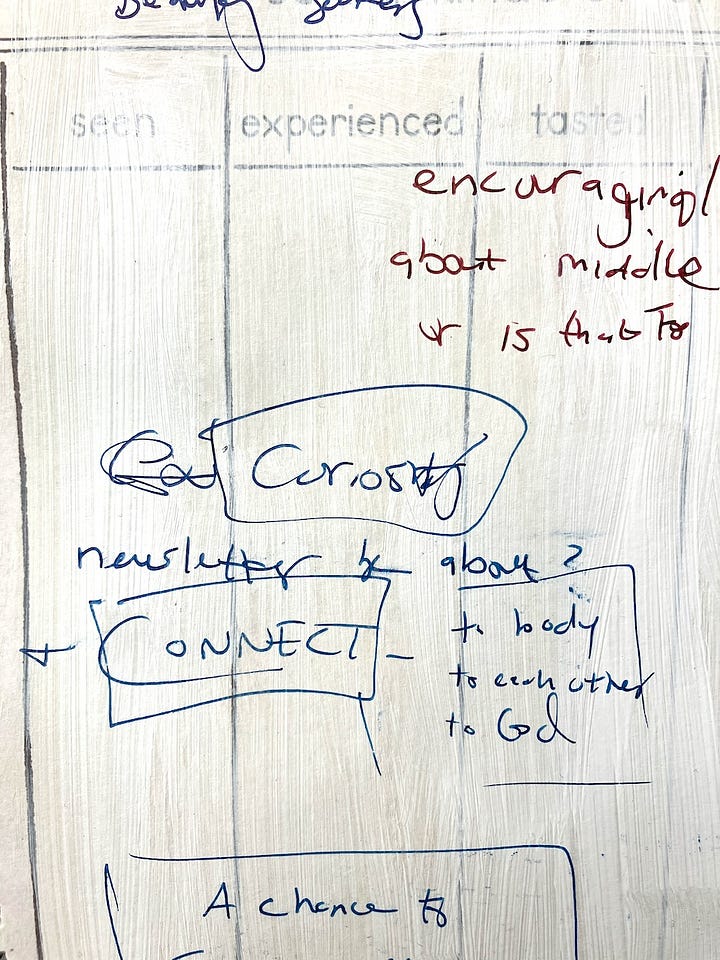 seen experienced tasted
encouraging/
about middle
or is that to
Curiosity
newsletter be about?
CONNECT -
to body
to each other
to God
A chance to